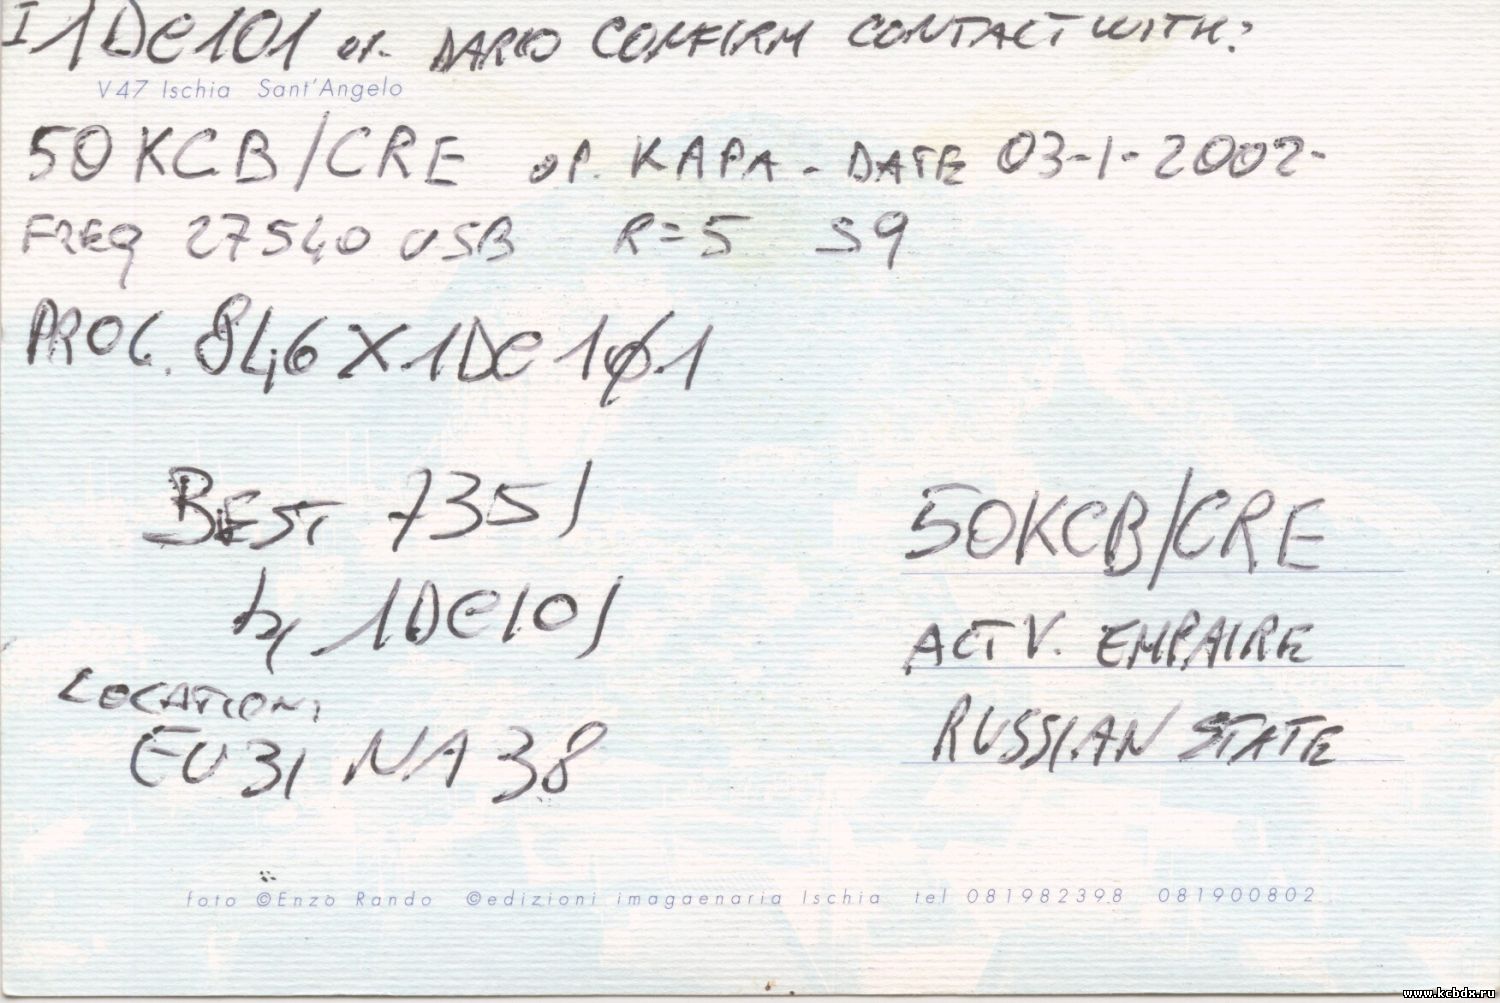 I 1DE101 OP. DARIO CONFIRM CONTACT WITH:
V47 Ischia Sant'Angelo
50KCB/CRE OP. KAPA - DATE 03-1-2002-
FREQ 27540 USB R=5 S9
PROG. 846 X 1DE 1Ø1
BEST 7351
by 1DE101
LOCATION:
EU 31 NA 38
50KCB/CRE
ACTV. EMPAIRE
RUSSIAN STATE
foto ©Enzo Rando ©edizioni imagaenaria Ischia tel 081982398 081900802
www.kcbdx.ru